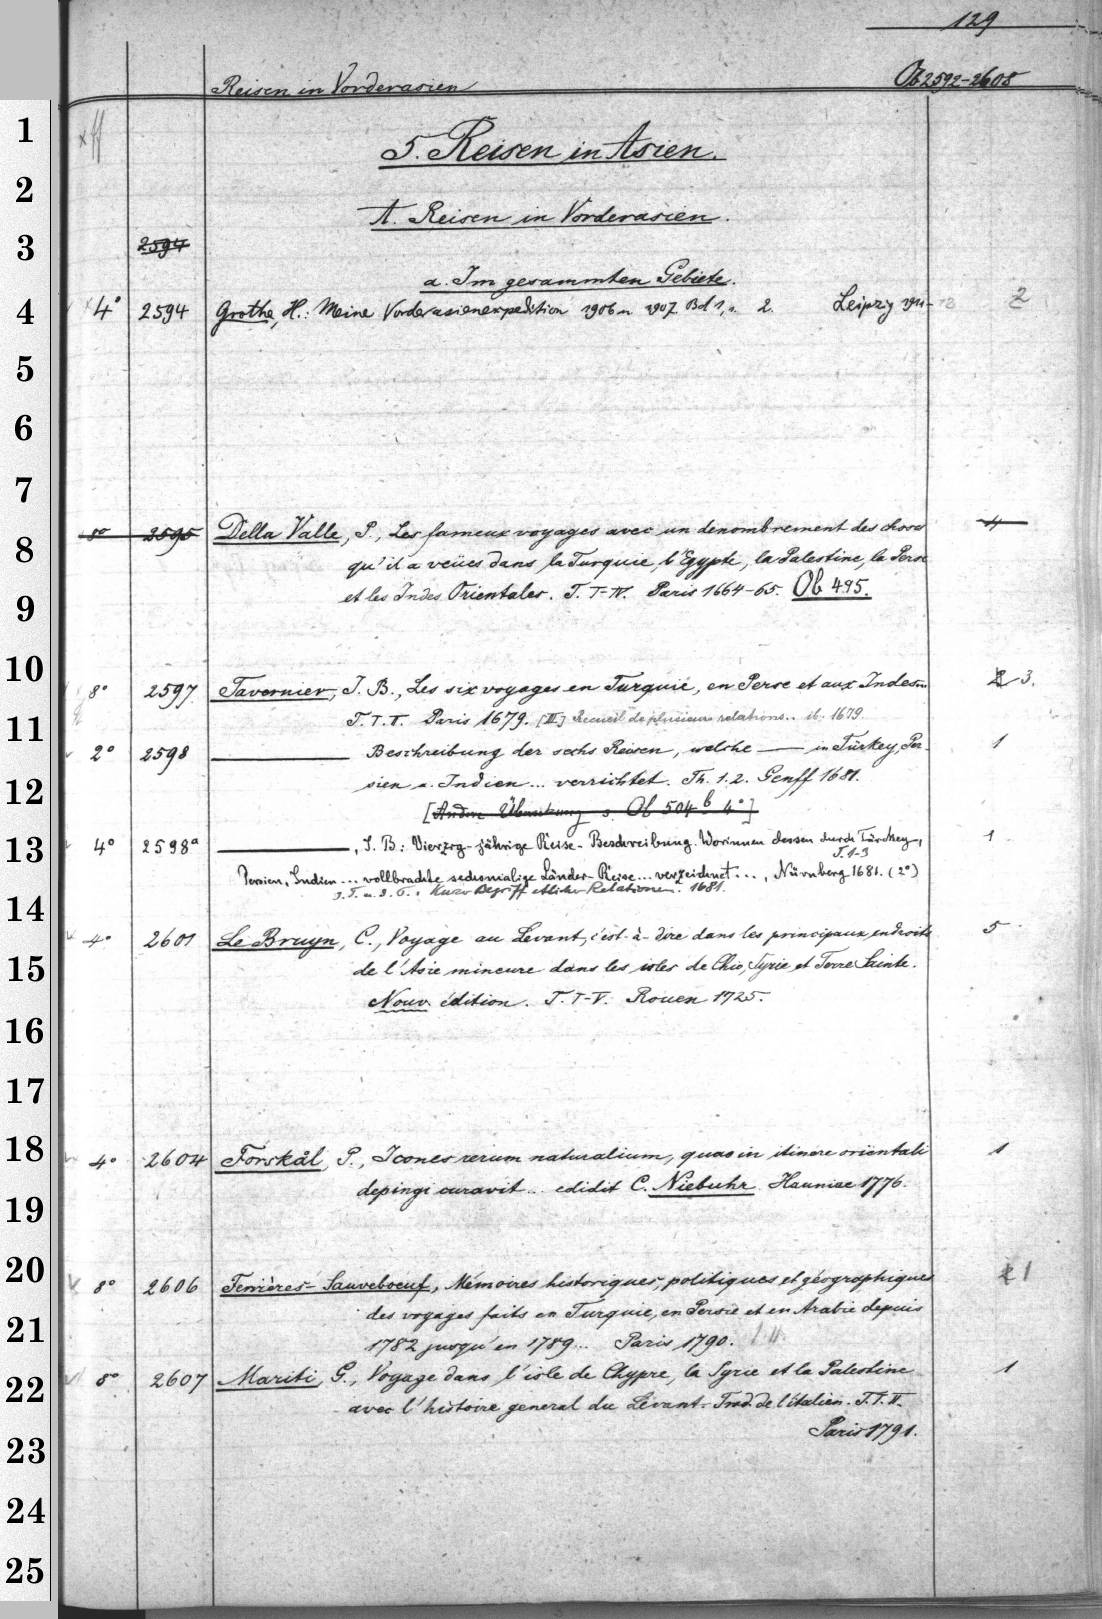 129
Reisen in Vorderasien Ob 2592-2608
1
5. Reisen in Asien.
2
A. Reisen in Vorderasien.
3 2594
a. Im gesammten Gebiete.
4 4° 2594 Grothe, H.: Meine Vorderasienexpedition 1906 u 1907. Bd 1, u. 2. Leipzig 1911- 2
5
6
7
8° 2595 Della Valle, P., Les fameux voyages avec un denombrement des choses 4
8 qu'il a veües dans la Turquie, l'Egypte, la Palestine, la Perse
9 et les Indes Orientales. T. I-IV. Paris 1664-65. Ob 495.
10 8° 2597 Tavernier, J. B., Les six voyages en Turquie, en Perse et aux Indes 3.
11 T. I. II. Paris 1679. [III] Recueil de plusieurs relations.. ib. 1679.
2° 2598 Beschreibung der sechs Reisen, welche — in Türkey, Per- 1
12 sien u. Indien ... verrichtet. Th. 1. 2. Genff 1681.
[Andere Übersetzung s. Ob 504 b 4°]
13 4° 2598a , J. B: Vierzig-jährige Reise-Beschreibung. Worinnen dessen durch Türckey, 1
T. 1-3
Persien, Indien ... vollbrachte sechsmalige Länder-Reise ... verzeichnet ..., Nürnberg 1681. (2°)
Kurzer Begriff etlicher Relationen. 1681.
14
4° 2601 Le Bruyn, C., Voyage au Levant, c'est-à-dire dans les principaux endroits 5
15 de l'Asie mineure dans les isles de Chio, Syrie et Terre Sainte.
Nouv. édition. T. I-V. Rouen 1725.
16
17
18 4° 2604 Forskål, P., Icones rerum naturalium, quas in itinere orientali 1
depingi curavit .. edidit C. Niebuhr. Hauniae 1776.
19
20 8° 2606 Ferrières-Sauveboeuf, Mémoires historiques, politiques et géographiques 1
21 des voyages faits en Turquie, en Persie et en Arabie depuis
1782 jusqu'en 1789... Paris 1790. I. II.
22 8° 2607 Mariti, G., Voyage dans l'isle de Chypre, la Syrie et la Palestine 1
avec l'histoire general du Levant. Trad. de l'italien. T. I. II.
23 Paris 1791.
24
25